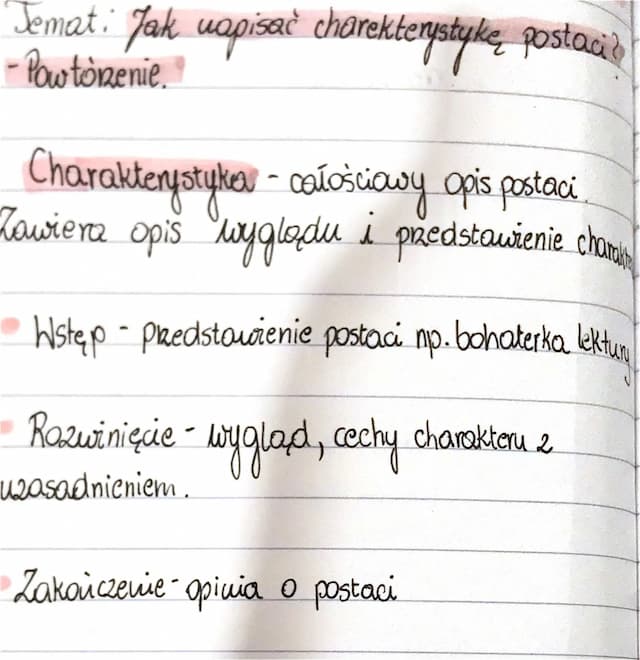 Temat: Jak napisać charekterystykę postaci?
- Powtórzenie.
Charakterystyka - całościowy opis postaci.
Zawiera opis wyglądu i przedstawienie charakte
• Wstęp - przedstawienie postaci np. bohaterka lektury
• Rozwinięcie - wygląd, cechy charakteru z
uzasadnieniem.
• Zakończenie - opinia o postaci